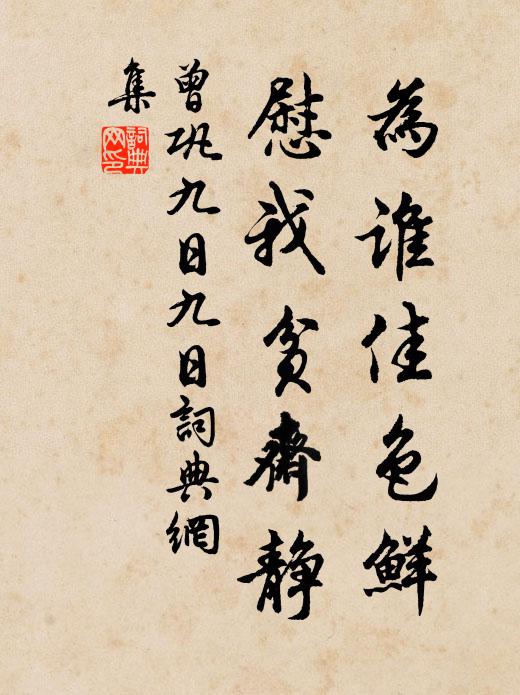 為誰佳色鮮
慰我貧齋静
曾巩九日九日詞典網
集
詞典
网印